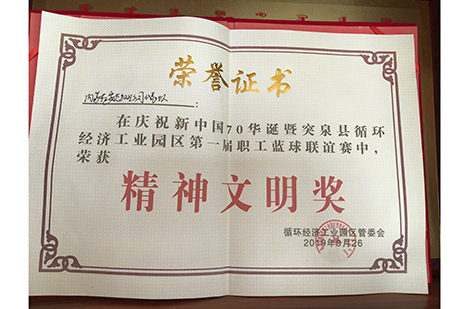 荣誉证书
在庆祝新中国70华诞暨突泉县循环
经济工业园区第一届职工蓝球联谊赛中,
荣获
精神文明奖
循环经济工业园区管委会
2019年9月26